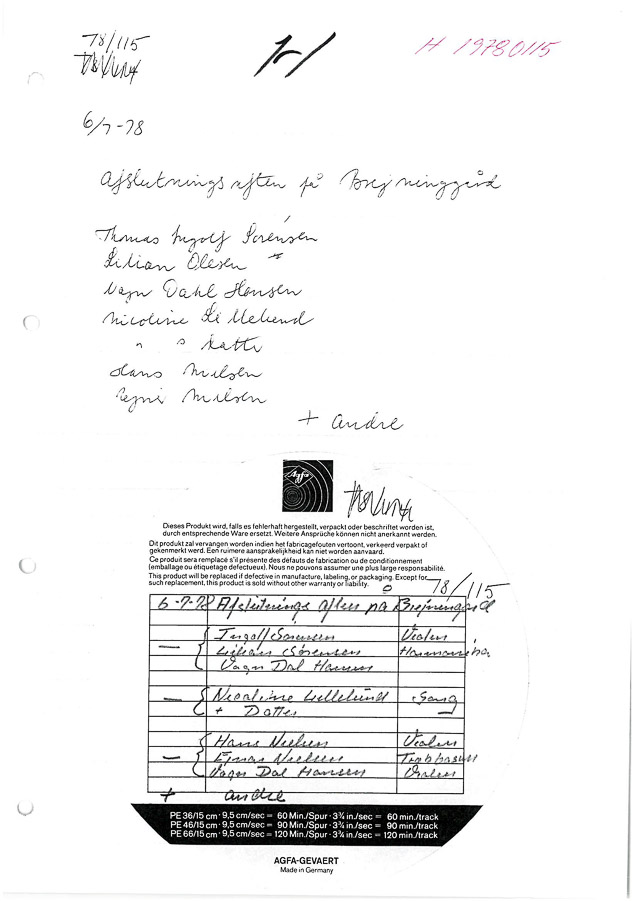 78/115
H 19780115
6/7-78
Afslutningsaften på Brejninggård
Thomas Ingolf Sørensen
Lilian Olesen
Vagn Dahl Hansen
Nicoline Lillelund
" "
Hans Nielsen
Nielsen
+ andre
Agfa
Dieses Produkt wird, falls es fehlerhaft hergestellt, verpackt oder beschriftet worden ist,
durch entsprechende Ware ersetzt. Weitere Ansprüche können nicht anerkannt werden.
Dit produkt zal vervangen worden indien het fabricagefouten vertoont, verkeerd verpakt of
gekenmerkt werd. Een ruimere aansprakelijkheid kan niet worden aanvaard.
Ce produit sera remplacé s'il présente des défauts de fabrication ou de conditionnement
(emballage ou étiquetage défectueux). Nous ne pouvons assumer une plus large responsabilité.
This product will be replaced if defective in manufacture, labeling, or packaging. Except for
such replacement, this product is sold without other warranty or liability.
78/115
6-7-78 Afslutnings aften på Brejninggård
Ingolf Sørensen Violin
— Lilian Sørensen
Vagn Dal Hansen
— Nicoline Lillelund Sang
+ Datter
Hans Nielsen Violin
— Ejnar Nielsen
Vagn Dal Hansen Violin
+ andre
PE 36/15 cm · 9,5 cm/sec = 60 Min./Spur · 3¾ in./sec = 60 min./track
PE 46/15 cm · 9,5 cm/sec = 90 Min./Spur · 3¾ in./sec = 90 min./track
PE 66/15 cm · 9,5 cm/sec = 120 Min./Spur · 3¾ in./sec = 120 min./track
AGFA-GEVAERT
Made in Germany